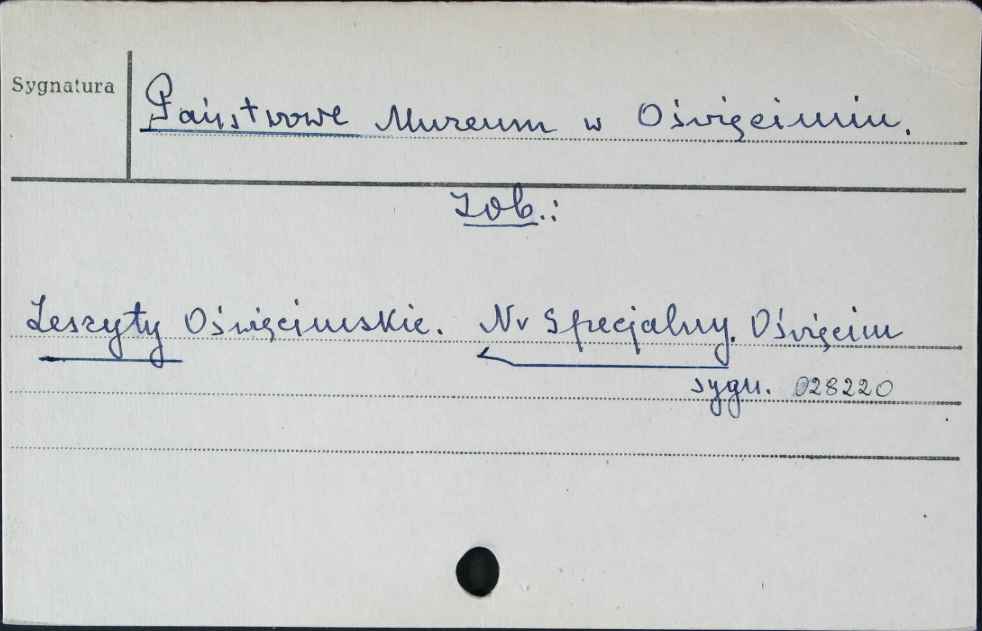 Sygnatura
Państwowe Muzeum w Oświęcimiu.
Zob.:
Zeszyty Oświęcimskie. Nr Specjalny. Oświęcim
sygn. 028220